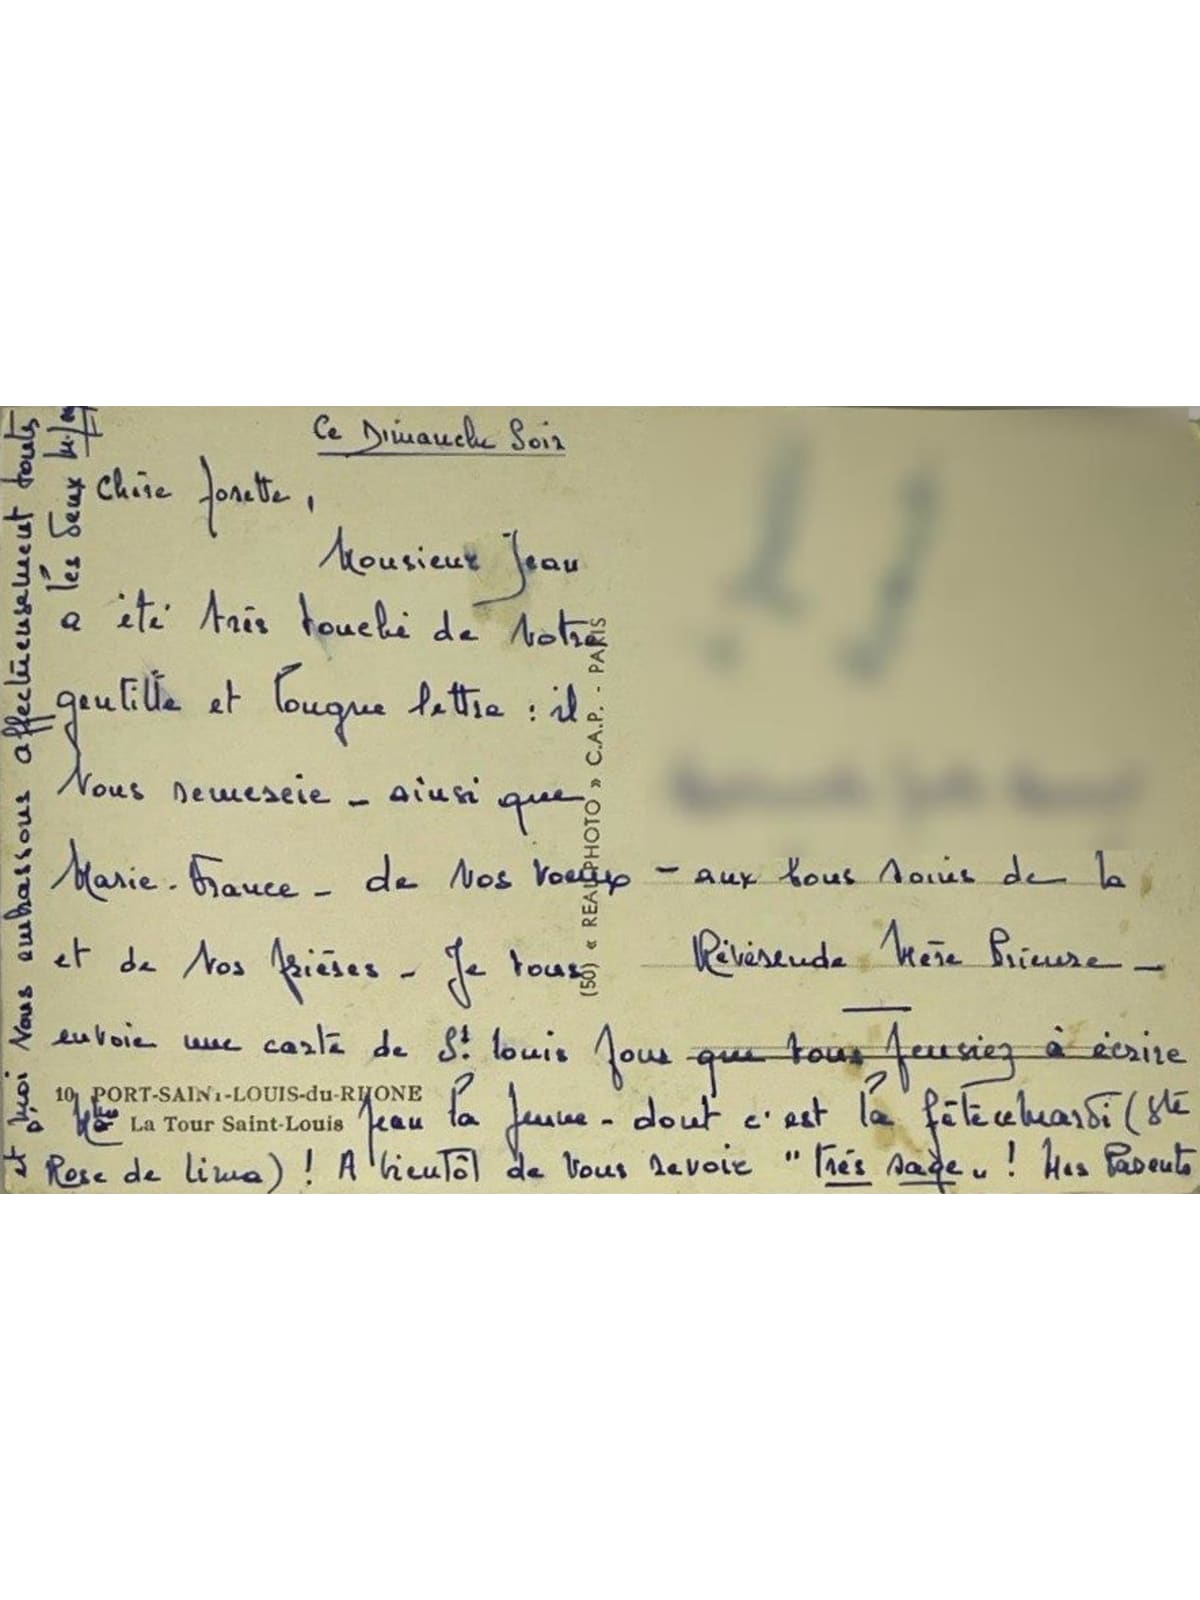 Ce Dimanche Soir
Chère Josette,
Monsieur Jean
a été très touché de votre
gentille et longue lettre : il
vous remercie - ainsi que
Marie-France - de vos voeux
et de vos prières - Je vous
envoie une carte de St. Louis pour que vous pensiez à écrire
à Jean la jeune - dont c'est la fête mardi (Ste
Rose de Lima) ! A bientôt de vous revoir "très sage" ! Mes Parents
et moi vous embrassons affectueusement toutes
les deux
- aux bons soins de la
Révérende Mère Prieure -
10 PORT-SAINT-LOUIS-du-RHONE
La Tour Saint-Louis
(50) « REAL-PHOTO » C.A.P. - PARIS